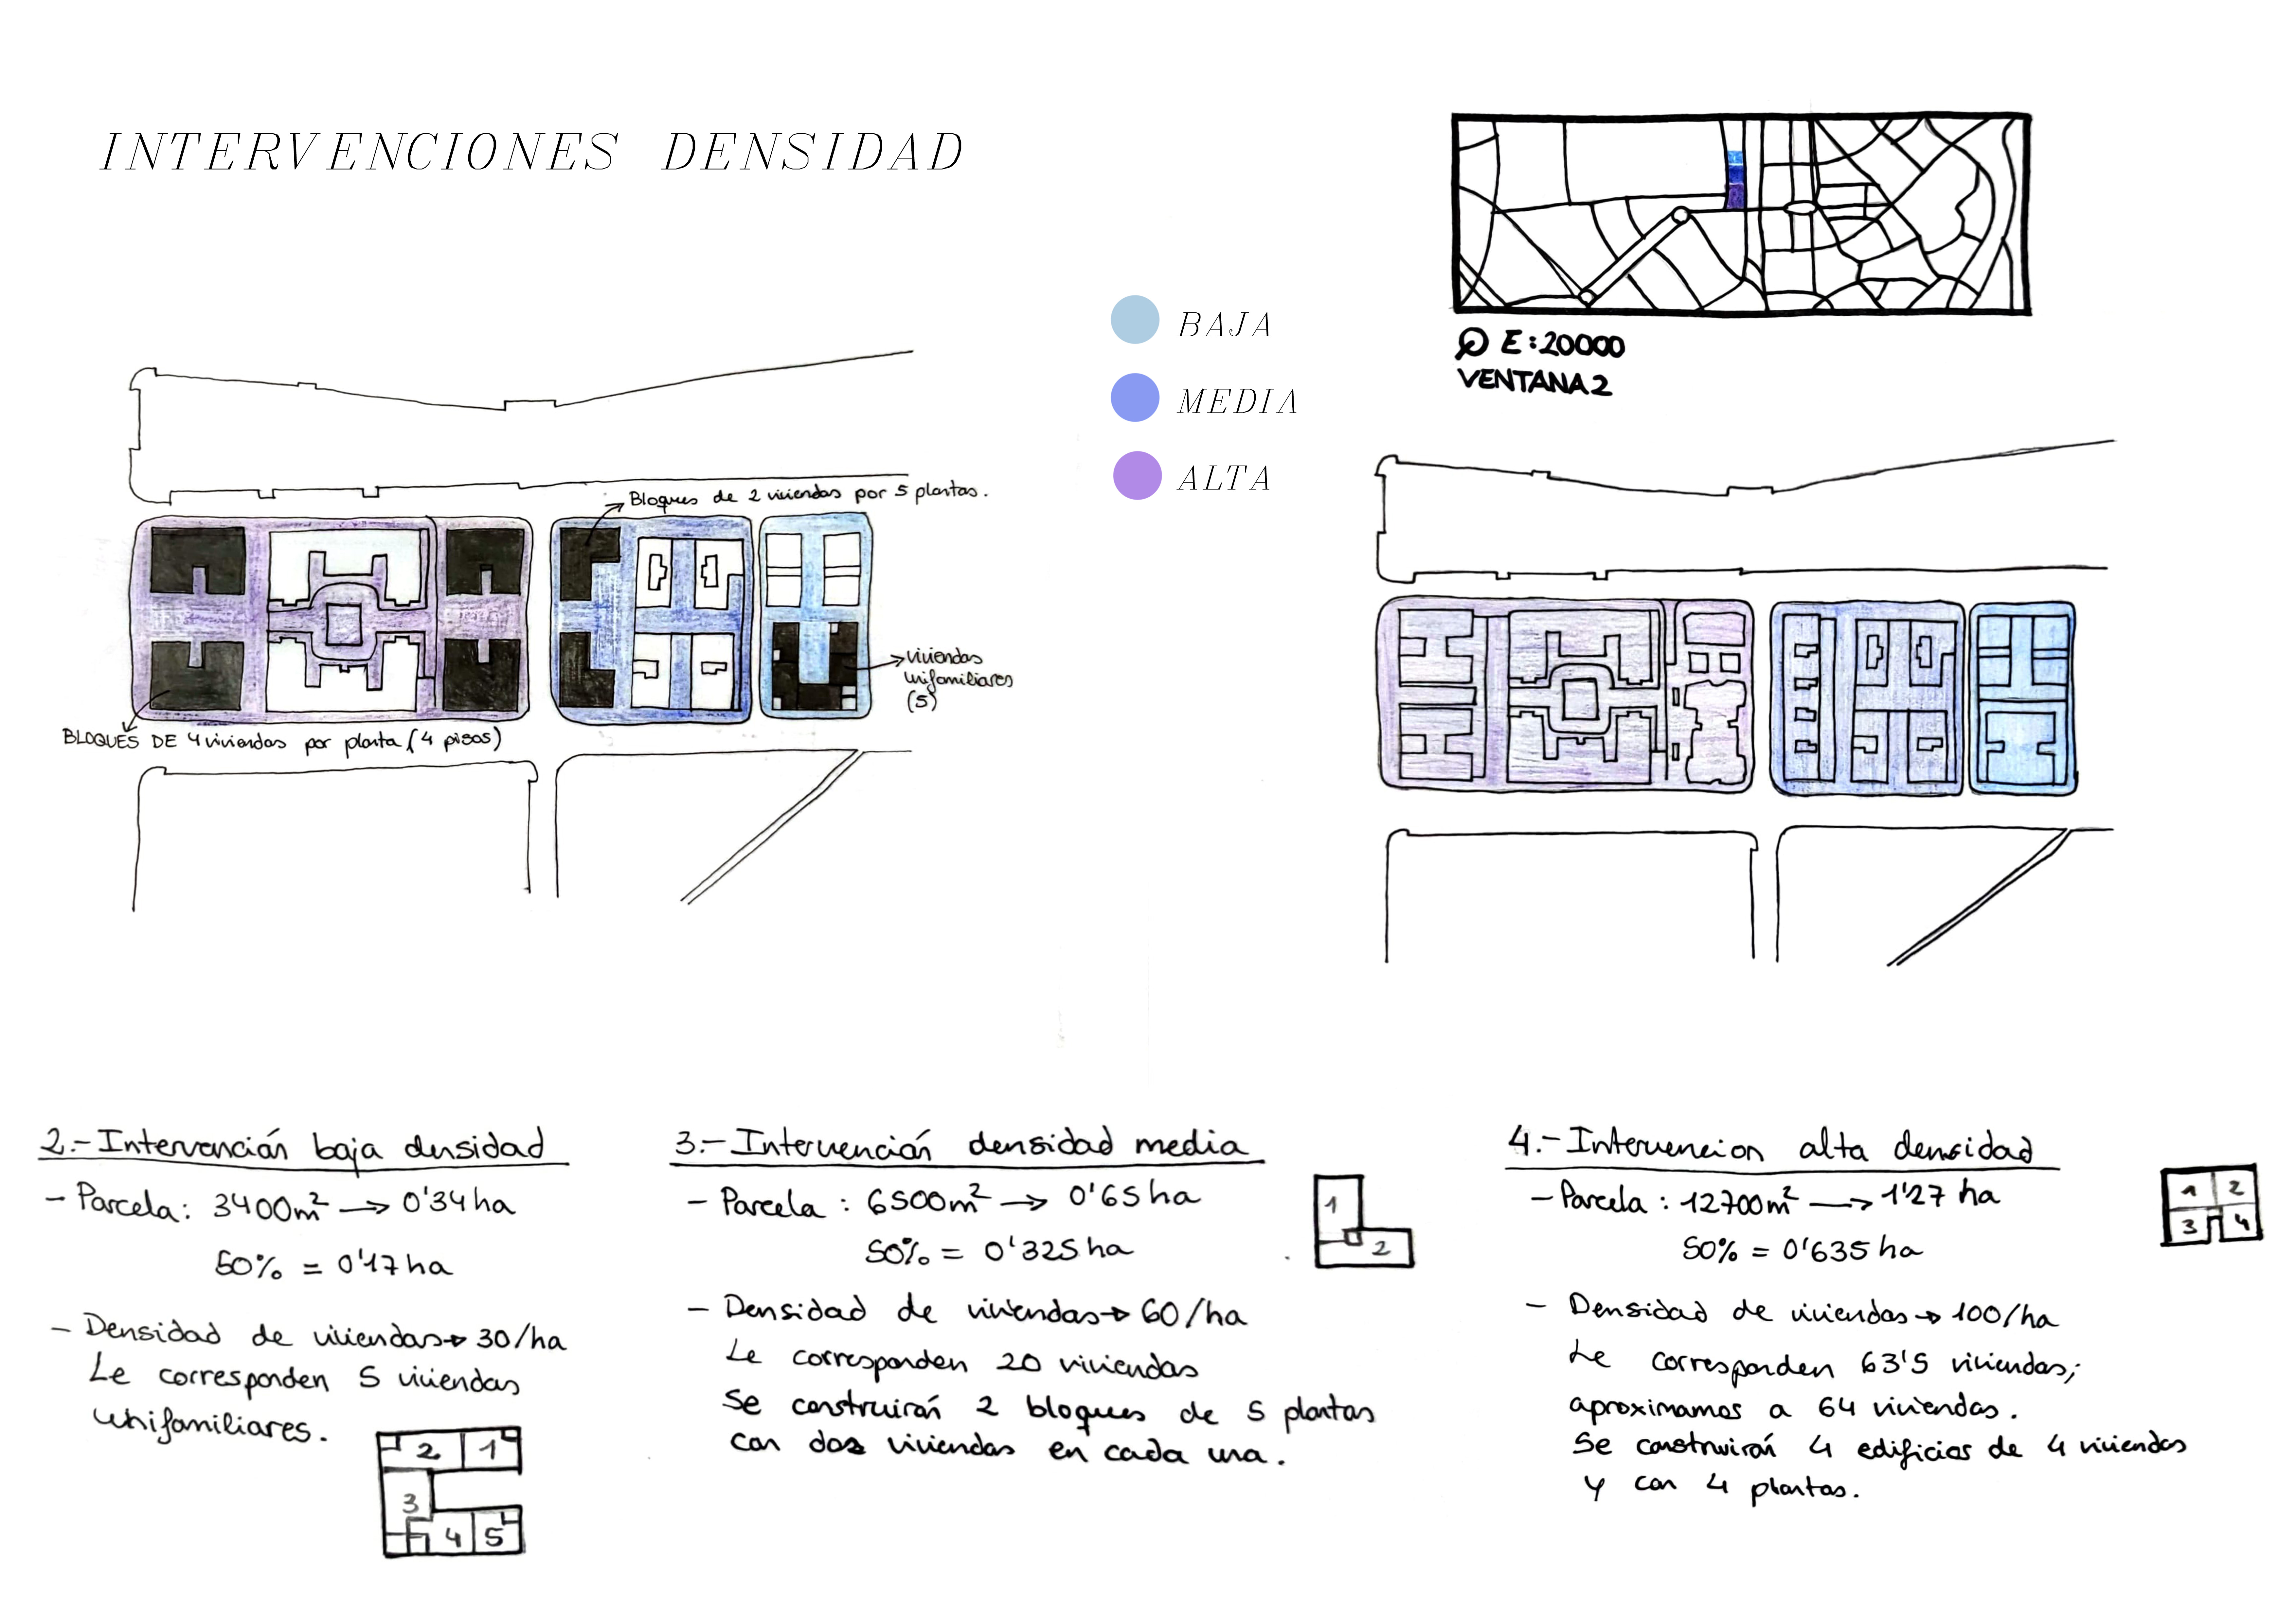 INTERVENCIONES DENSIDAD
E:20000
VENTANA 2
BAJA
MEDIA
ALTA
Bloques de 2 viviendas por 5 plantas.
viviendas
unifamiliares
(5)
BLOQUES DE 4 viviendas por planta (4 pisos)
2.- Intervención baja densidad
- Parcela: 3400m² → 0'34 ha
50% = 0'17 ha
- Densidad de viviendas → 30/ha
Le corresponden 5 viviendas
unifamiliares.
2 1
3
4 5
3.- Intervención densidad media
- Parcela : 6500m² → 0'65 ha
50% = 0'325 ha
- Densidad de viviendas → 60/ha
Le corresponden 20 viviendas
Se construirán 2 bloques de 5 plantas
con dos viviendas en cada una.
1
2
4.- Intervencion alta densidad
- Parcela : 12700m² → 1'27 ha
50% = 0'635 ha
- Densidad de viviendas → 100/ha
Le corresponden 63'5 viviendas;
aproximamos a 64 viviendas.
Se construirán 4 edificios de 4 viviendas
y con 4 plantas.
1 2
3 4